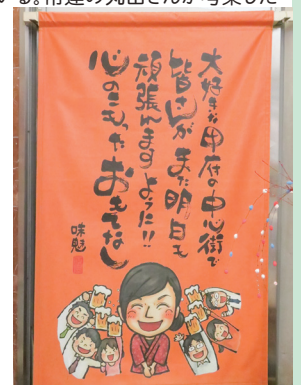 いる。常連の丸山さんが考案した
大好きな甲府の中心街で
皆さんがまた明日も
頑張んますように!!
心のこもったおもてなし
味魁